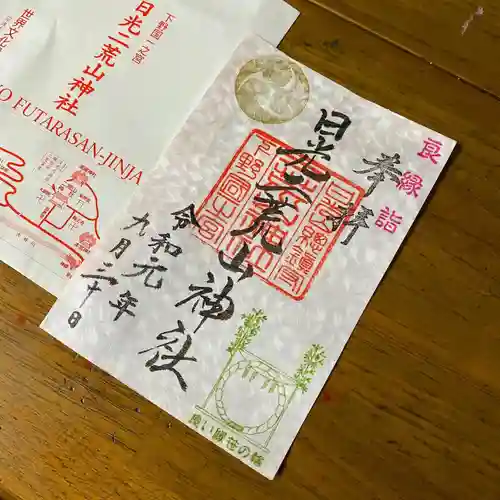 良縁詣
奉拝
日光二荒山神社
令和元年
九月三十日
良い縁笹の輪
下野國一之宮
下野国一之宮
日光二荒山神社
世界文化
FUTARASAN-JINJA